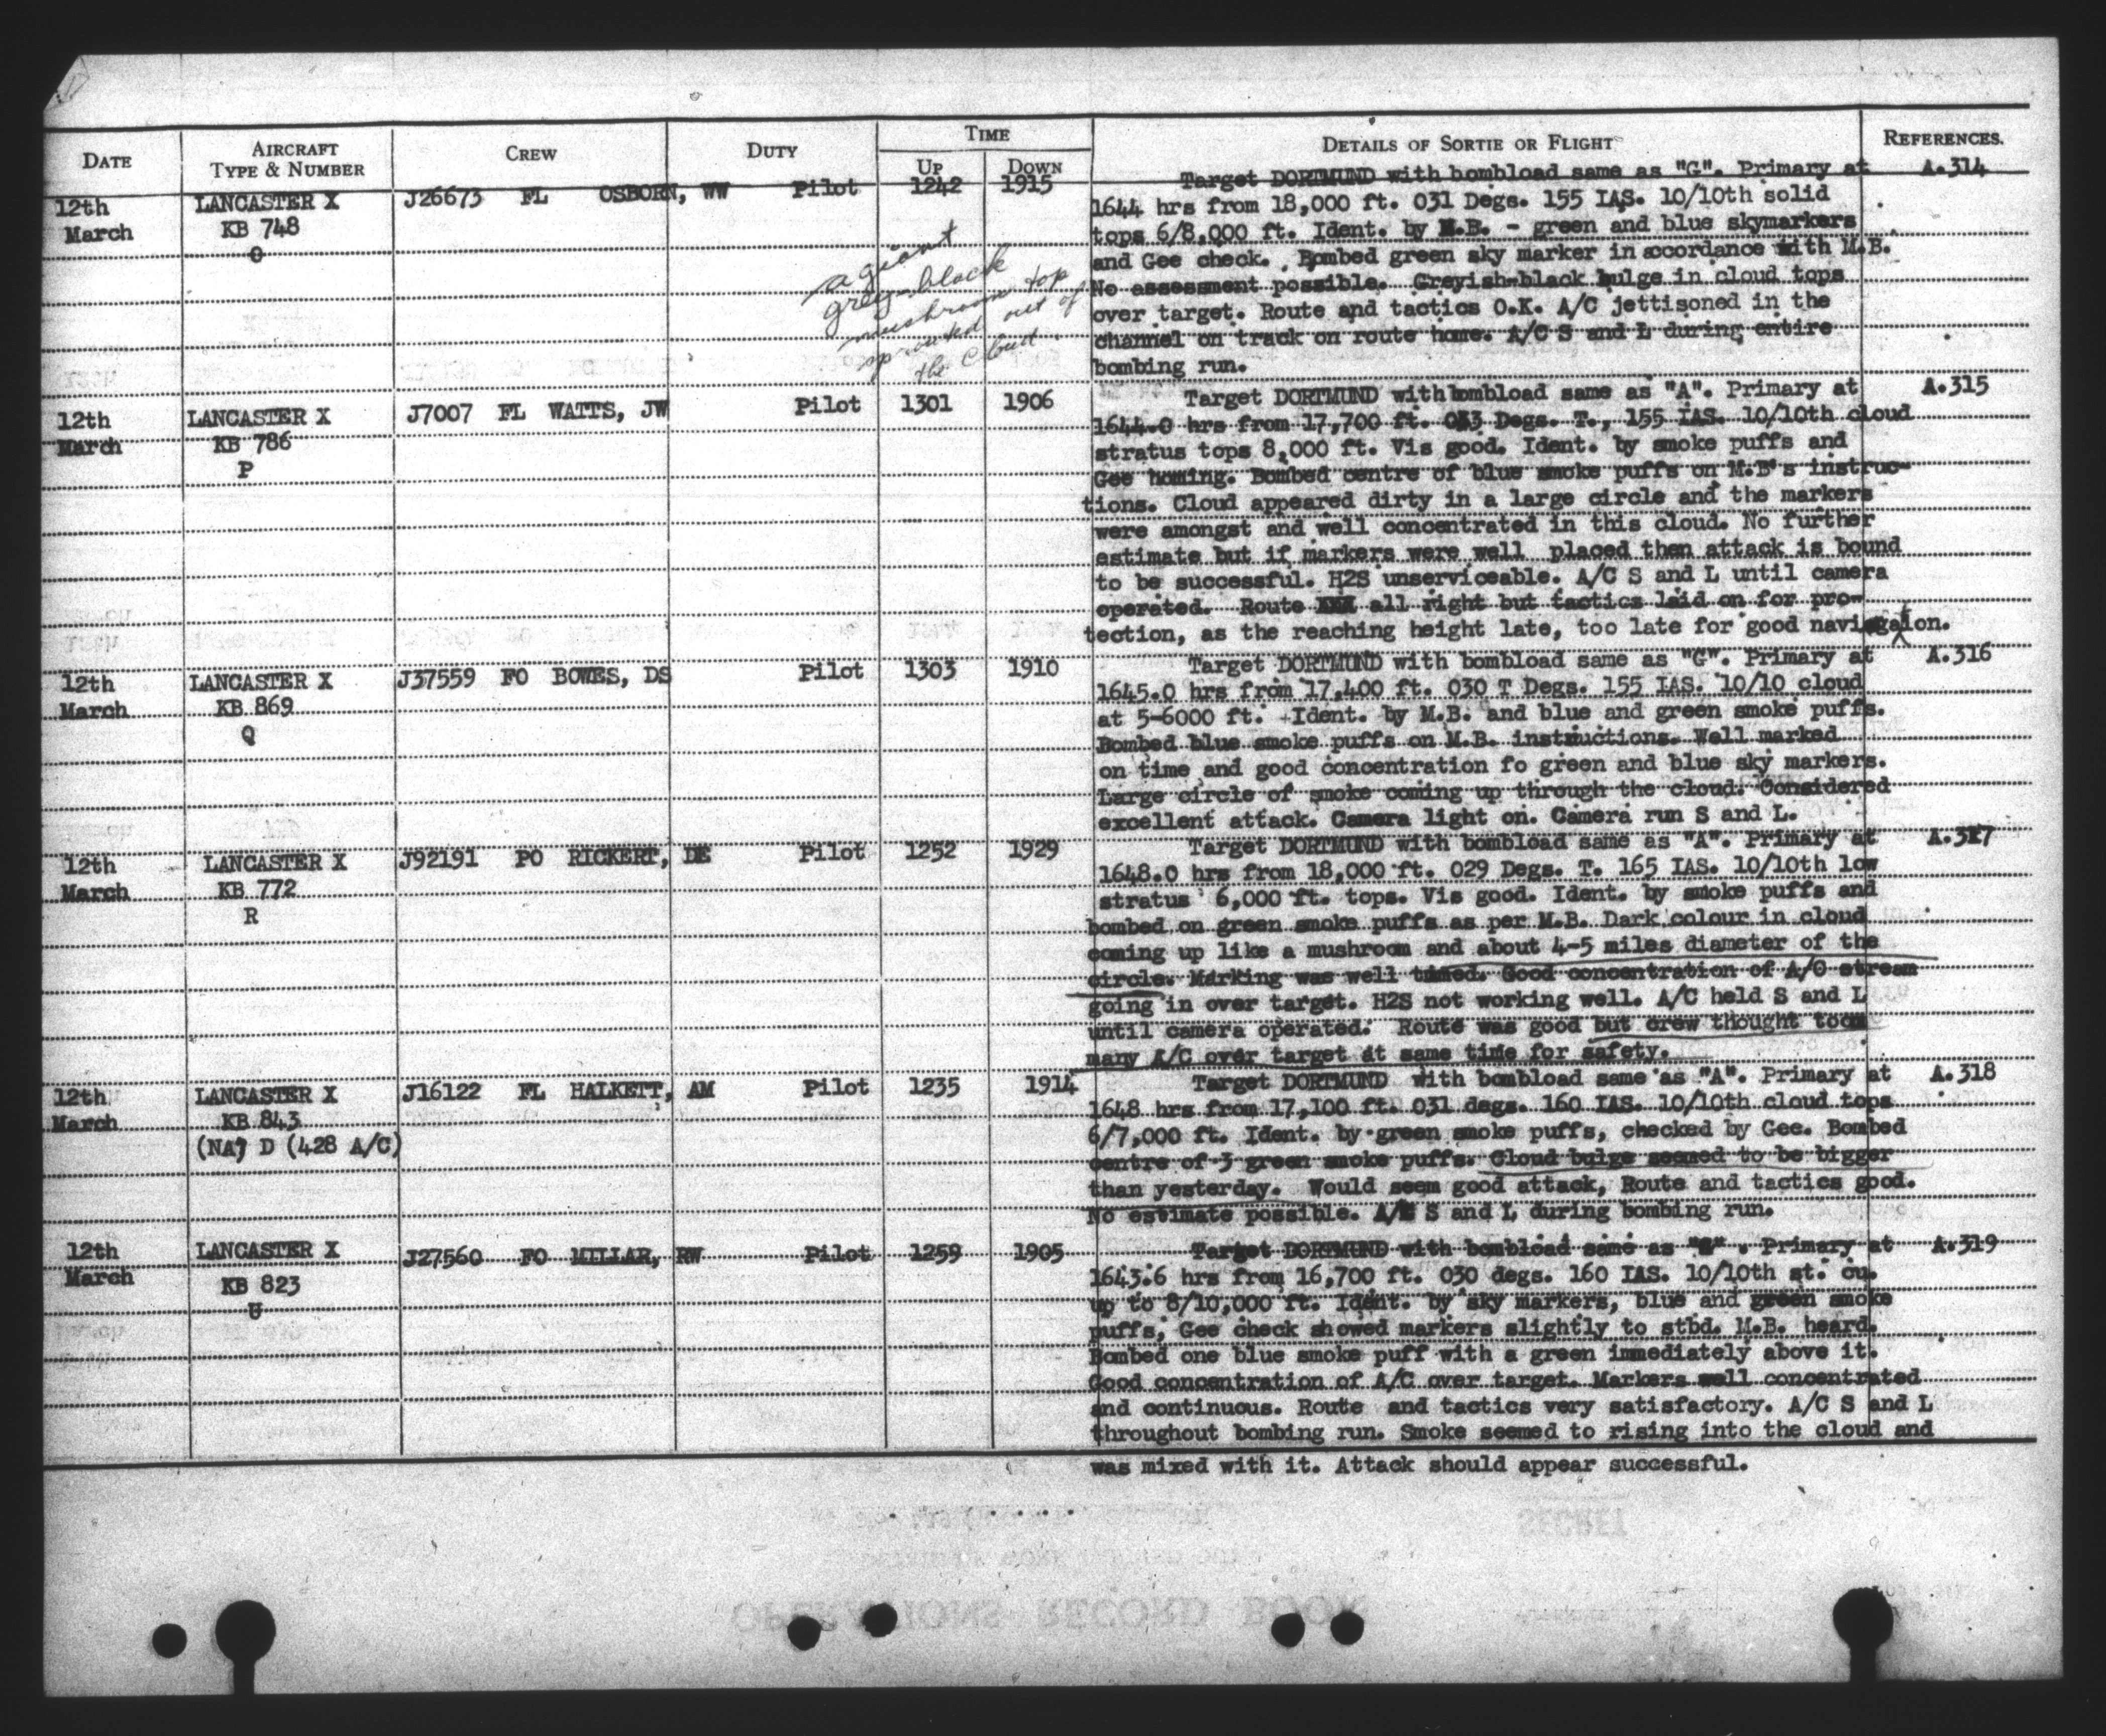 DATE
AIRCRAFT
TYPE & NUMBER
CREW
DUTY
TIME
UP
DOWN
DETAILS OF SORTIE OR FLIGHT
REFERENCES.
12th
March
LANCASTER X
KB 748
O
J26673 FL OSBORN, WW
Pilot
1242
1915
a giant
grey-black
mushroom top
sprouted out of
the cloud
Target DORTMUND with bombload same as "G". Primary at
1644 hrs from 18,000 ft. 031 Degs. 155 IAS. 10/10th solid
tops 6/8,000 ft. Ident. by M.B. - green and blue skymarkers
and Gee check. Bombed green sky marker in accordance with M.B.
No assessment possible. Greyish-black bulge in cloud tops
over target. Route and tactics O.K. A/C jettisoned in the
channel on track on route home. A/C S and L during entire
bombing run.
A.314
12th
March
LANCASTER X
KB 786
P
J7007 FL WATTS, JW
Pilot
1301
1906
Target DORTMUND with bombload same as "A". Primary at
1644.0 hrs from 17,700 ft. 033 Degs. T., 155 IAS. 10/10th cloud
stratus tops 8,000 ft. Vis good. Ident. by smoke puffs and
Gee homing. Bombed centre of blue smoke puffs on M.B's instruc-
tions. Cloud appeared dirty in a large circle and the markers
were amongst and well concentrated in this cloud. No further
estimate but if markers were well placed then attack is bound
to be successful. H2S unserviceable. A/C S and L until camera
operated. Route XXX all right but tactics laid on for pro-
tection, as the reaching height late, too late for good navigation.
A.315
12th
March
LANCASTER X
KB 869
Q
J37559 FO BOWES, DS
Pilot
1303
1910
Target DORTMUND with bombload same as "G". Primary at
1645.0 hrs from 17,400 ft. 030 T Degs. 155 IAS. 10/10 cloud
at 5-6000 ft. Ident. by M.B. and blue and green smoke puffs.
Bombed blue smoke puffs on M.B. instructions. Well marked
on time and good concentration fo green and blue sky markers.
Large circle of smoke coming up through the cloud. Considered
excellent attack. Camera light on. Camera run S and L.
A.316
12th
March
LANCASTER X
KB 772
R
J92191 PO RICKERT, DE
Pilot
1252
1929
Target DORTMUND with bombload same as "A". Primary at
1648.0 hrs from 18,000 ft. 029 Degs. T. 165 IAS. 10/10th low
stratus 6,000 ft. tops. Vis good. Ident. by smoke puffs and
bombed on green smoke puffs as per M.B. Dark colour in cloud
coming up like a mushroom and about 4-5 miles diameter of the
circle. Marking was well timed. Good concentration of A/C stream
going in over target. H2S not working well. A/C held S and L
until camera operated. Route was good but crew thought toom
many A/C over target at same time for safety.
A.317
12th
March
LANCASTER X
KB 843
(NA) D (428 A/C)
J16122 FL HALKETT, AM
Pilot
1235
1914
Target DORTMUND with bombload same as "A". Primary at
1648 hrs from 17,100 ft. 031 degs. 160 IAS. 10/10th cloud tops
6/7,000 ft. Ident. by green smoke puffs, checked by Gee. Bombed
centre of 3 green smoke puffs. Cloud bulge seemed to be bigger
than yesterday. Would seem good attack, Route and tactics good.
No estimate possible. A/C S and L during bombing run.
A.318
12th
March
LANCASTER X
KB 823
U
J27560 FO MILLAR, RW
Pilot
1259
1905
Target DORTMUND with bombload same as . Primary at
1643.6 hrs from 16,700 ft. 030 degs. 160 IAS. 10/10th st. cu.
up to 8/10,000 ft. Ident. by sky markers, blue and green smoke
puffs, Gee check showed markers slightly to stbd. M.B. heard.
Bombed one blue smoke puff with a green immediately above it.
Good concentration of A/C over target. Markers well concentrated
and continuous. Route and tactics very satisfactory. A/C S and L
throughout bombing run. Smoke seemed to rising into the cloud and
was mixed with it. Attack should appear successful.
A.319
SECRET
OPERATIONS RECORD BOOK